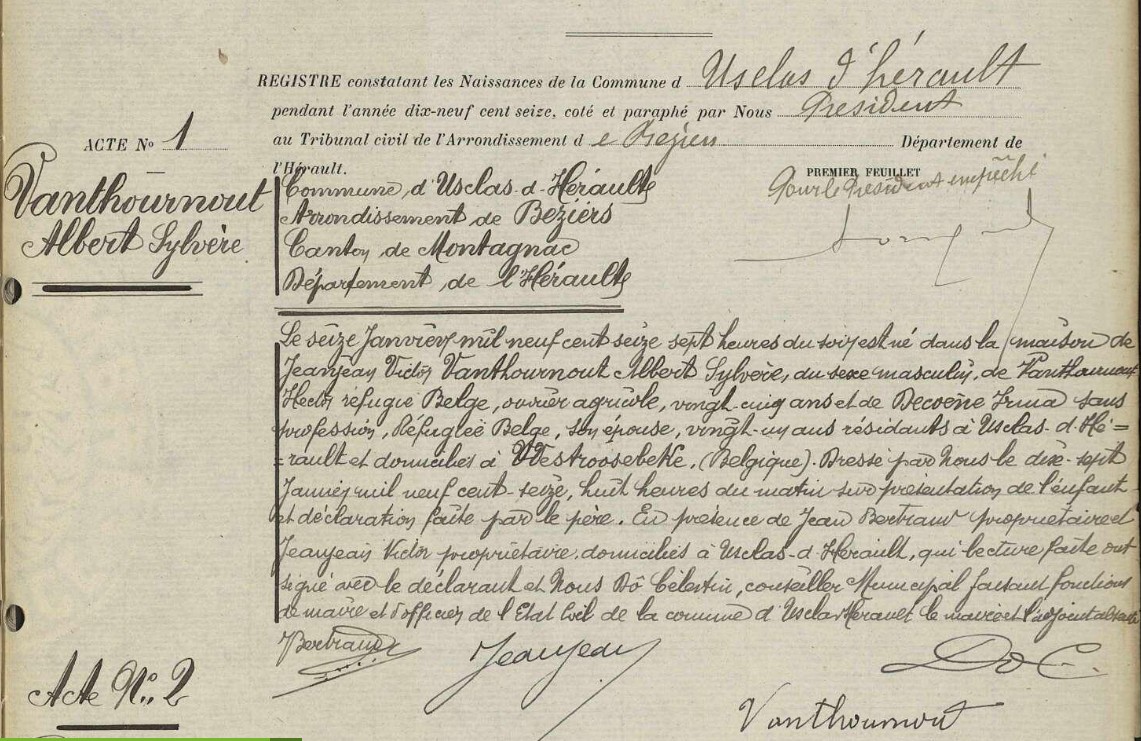 REGISTRE constatant les Naissances de la Commune d Usclas d'hérault
pendant l'année dix-neuf cent seize, coté et paraphé par Nous President
au Tribunal civil de l'Arrondissement d e Beziers Département de
l'Hérault.
PREMIER FEUILLET
Pour le President empêché
ACTE No 1
Vanthournout
Albert Sylvère
Commune d'Usclas-d-Hérault
Arrondissement de Beziérs
Canton de Montagnac
Département de l'Hérault
Le seize Janvier mil neuf cent seize sept heures du soir est né dans la maison de
Jeanjean Victor Vanthournout Albert Sylvère, du sexe masculin, de Vanthournout
Hector réfugié Belge, ouvrier agricole, vingt-cinq ans et de Decoëne Irma sans
profession, Réfugiée Belge, son épouse, vingt-un ans résidants à Usclas-d-Hé=
=rault et domiciliés à Westroosebeke. (Belgique). Dressé par Nous le dix-sept
Janvier mil neuf cent-seize, huit heures du matin sur présentation de l'enfant
et déclaration faite par le père. En présence de Jean Bertrand propriétaire et
Jeanjean Victor propriétaire. domiciliés à Usclas-d-Hérault, qui lecture faite ont
signé avec le déclarant et Nous Dô Célestin, conseiller Municipal faisant fonctions
de maire et d'officier de l'Etat Civil de la commune d'Usclas Hérault le maire et l'adjoint absents
Bertrand Jeanjean Do C.
Vanthournout
Acte No. 2